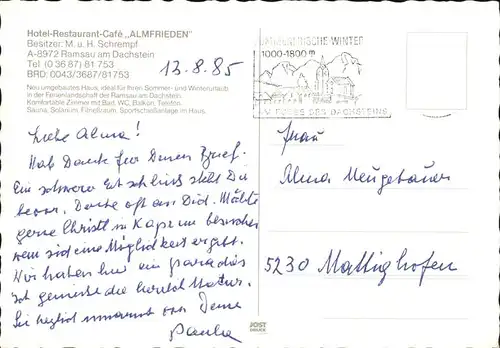 Hotel-Restaurant-Café „ALMFRIEDEN"
Besitzer: M. u. H. Schrempf
A-8972 Ramsau am Dachstein
Tel (0 36 87) 81 753
BRD: 0043/3687/81753
Neu umgebautes Haus, ideal für Ihren Sommer- und Winterurlaub
in der Ferienlandschaft der Ramsau am Dachstein.
Komfortable Zimmer mit Bad, WC, Balkon, Telefon,
Sauna, Solarium, Fitneßraum, Sportschießanlage im Haus.
13.8.85
WINTER
1000-1800 m
AM FUSSE DES DACHSTEINS
Liebe Alma!
Hab Dank für Deinen Brief.
Ein schwerer Entschluss steht Dir
bevor. Denke oft an Dich. Möchte
gerne Christl in Kaprun besuchen
wenn sich eine Möglichkeit ergibt.
Wir haben hier ein Paradies
ich genieße die herrl. Natur.
Sei herzlich umarmt von Deine
Paula
Frau
Alma Neugebauer
5230 Mattighofen
JOST